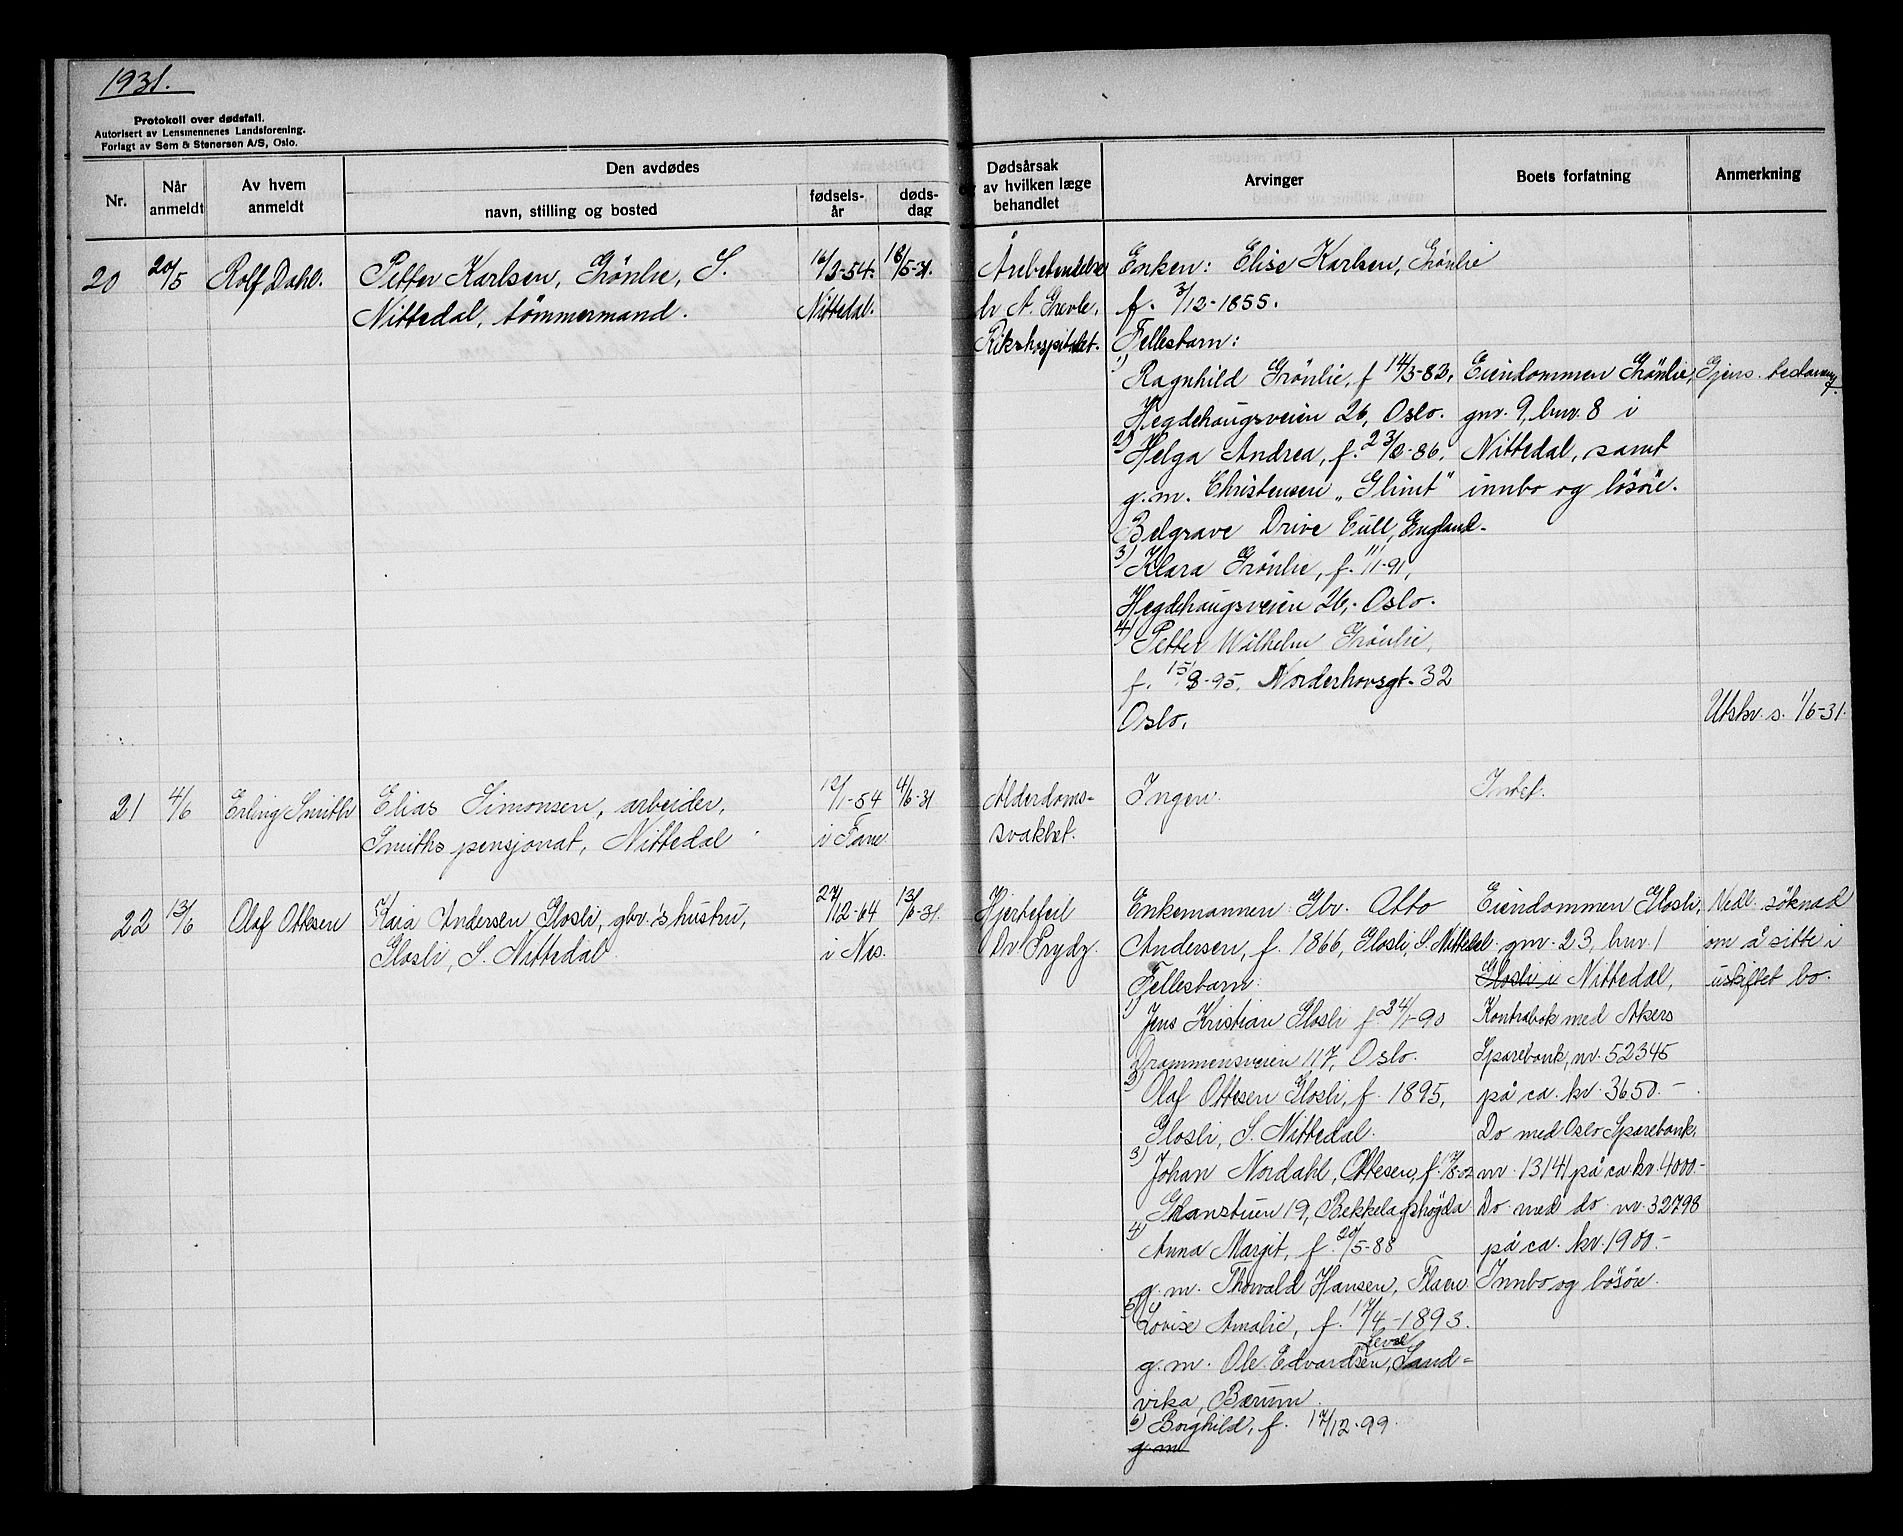 1931.
Protokoll over dødsfall.
Autorisert av Lensmennenes Landsforening.
Forlagt av Sem & Stenersen A/S, Oslo.
Nr.
Når anmeldt
Av hvem anmeldt
Den avdødes
navn, stilling og bosted
fødselsår
dødsdag
Dødsårsak
av hvilken læge
behandlet
Arvinger
Boets forfatning
Anmerkning
20
20/5
Rolf Dahl.
Petter Karlsen, Grönlie, S.
Nittedal, tömmermand.
16/3-54.
Nittedal.
18/5-31.
Årebetendelse
dr A. Grevle,
Rikshospitalet.
Enken: Elise Karlsen, Grönlie
f. 3/12-1855.
Fellesbarn:
1) Ragnhild Grönlie, f 14/3-83,
Hegdehaugsveien 26, Oslo.
2) Helga Andrea, f. 23/2-86,
g.m. Christensen "Glimt"
Belgrave Drive Cull, England.
3) Klara Grönlie, f. 1/1-91,
Hegdehaugsveien 26, Oslo.
4) Petter Wilhelm Grönlie,
f. 15/8-95, Norderhovsgt. 32
Oslo.
Eiendommen Grönlie,
gnr. 9, bnr. 8 i
Nittedal, samt
innbo og lösöre.
Gjens.
Utskr. s. 1/6-31.
21
4/6
Erling Smith
Elias Simonsen, arbeider,
Smiths pensjonat, Nittedal
12/1-54
i Fane
4/6-31
Alderdoms-
svakhet.
Ingen.
Intet.
22
13/6
Olaf Ottesen
Kaia Andersen Glosli, gbr.'s hustru,
Glosli, S. Nittedal.
27/12-64
i Nes.
13/6-31.
Hjertefeil
Dr. Prydz.
Enkemannen Gbr. Otto
Andersen, f. 1866, Glosli, S. Nittedal
Fellesbarn:
1) Jens Kristian Glosli f. 24/1-90
Drammensveien 117, Oslo.
2) Olaf Ottesen Glosli, f. 1895,
Glosli, S. Nittedal.
3) Johan Nordahl, Ottesen, f. 17/8-02
Granstuen 19, Bekkelagshögda
4) Anna Margit, f. 20/5-88
g.m. Thorvald Hansen, Flaen
5) Lovise Amalie, f. 17/4-1893.
g.m. Ole Edvardsen, Sand-
vika, Bærum.
6) Borghild, f. 17/12-99.
g.m
Eiendommen Glosli,
gnr. 23, bnr. 1
Glosli i Nittedal,
Kontrabok med Akers
Sparebank, nr. 52345
på ca. kr. 3650.-
Do med Oslo Sparebank,
nr. 13141 på ca kr. 4000.-
Do. med do nr. 32798
på ca. kr. 1900.-
Innbo og lösöre.
Vedl. söknad
om å sitte i
uskiftet bo.